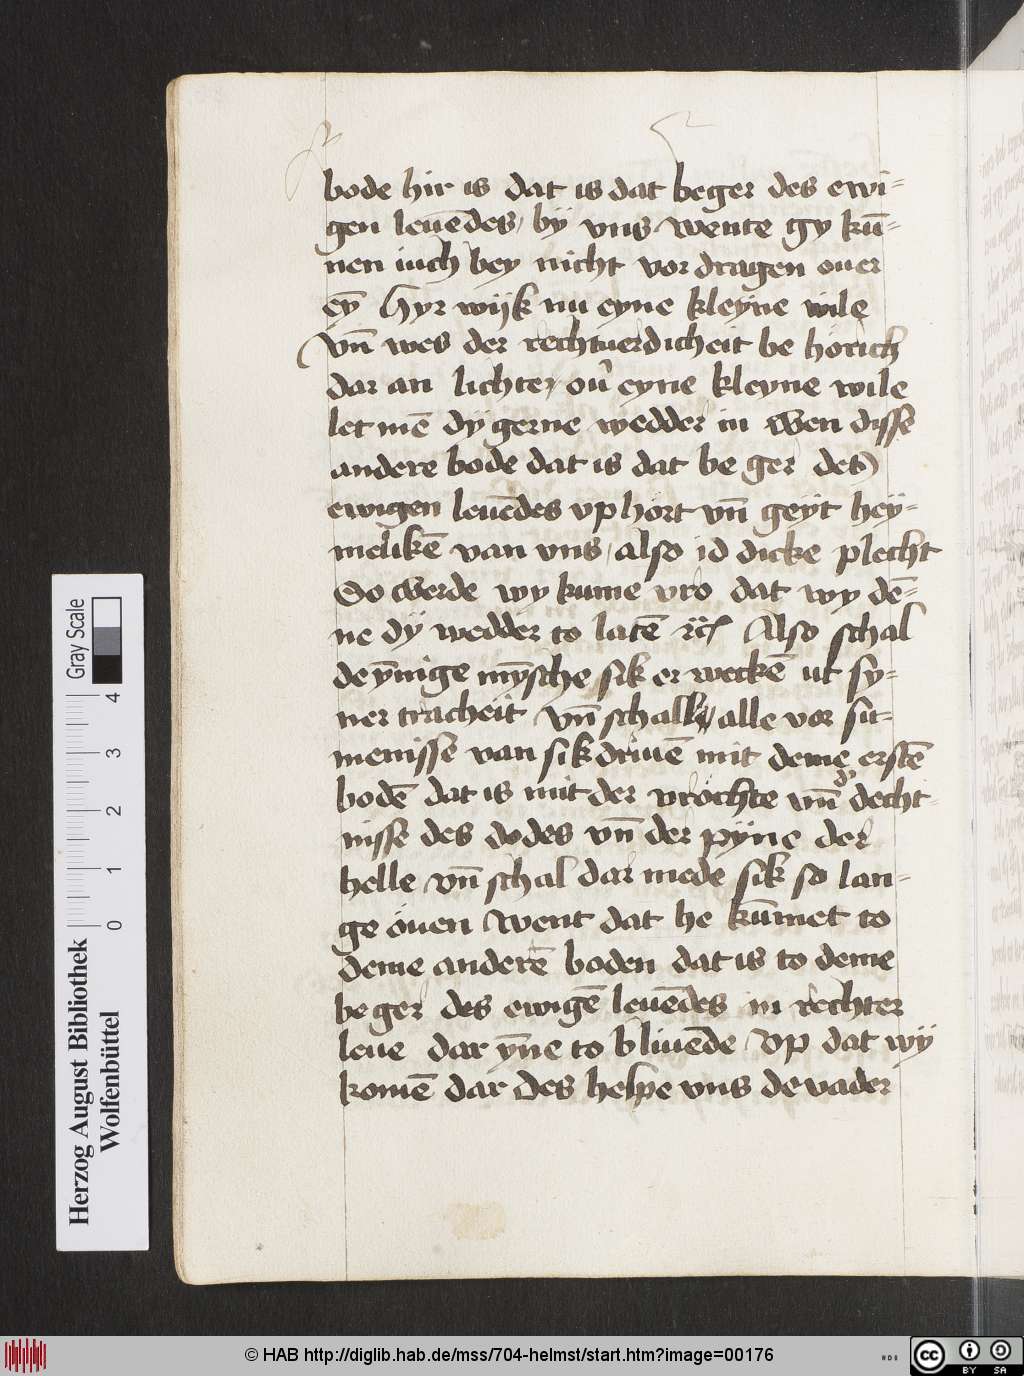 bode hir is dat is dat beger des ewi=
gen leuēdes, by vns wente gy kū=
nen iuch bey nicht vor dragen ouer
eȳ Hyr wijk nu eyne kleyne wile
vn̄ wes der rechtuerdicheit be hörich
dar an lichter, on̄ eyne kleyne wile
let mē dy gerne wedder in Wen disse
andere bode dat is dat be ger des
ewigen leuēdes vp hört vn̄ geyt hey=
melikē van vns, also id dicke plecht
So werde wy kume vro dat wy dē=
ne dy wedder to latē Also schal
de ȳnige mȳsche sik er weckē ut sy=
ner tracheit vn̄ schal alle vor sū=
menisse van sik driuē mit deme erstē
bodē dat is mit der vröchte vnn̄ decht=
nisse des dodes vn̄ der pyne der
helle vn̄ schal dar mede sik so lan=
ge öuen Went dat he kūmet to
deme anderē boden dat is to deme
be ger des ewigē leuēdes in rechter
leue dar ȳne to bliuēde vp dat wy
komē dar des helpe vns de vader
Herzog August Bibliothek
Wolfenbüttel
0 1 2 3 4
Gray Scale
© HAB http://diglib.hab.de/mss/704-helmst/start.htm?image=00176
cc BY SA